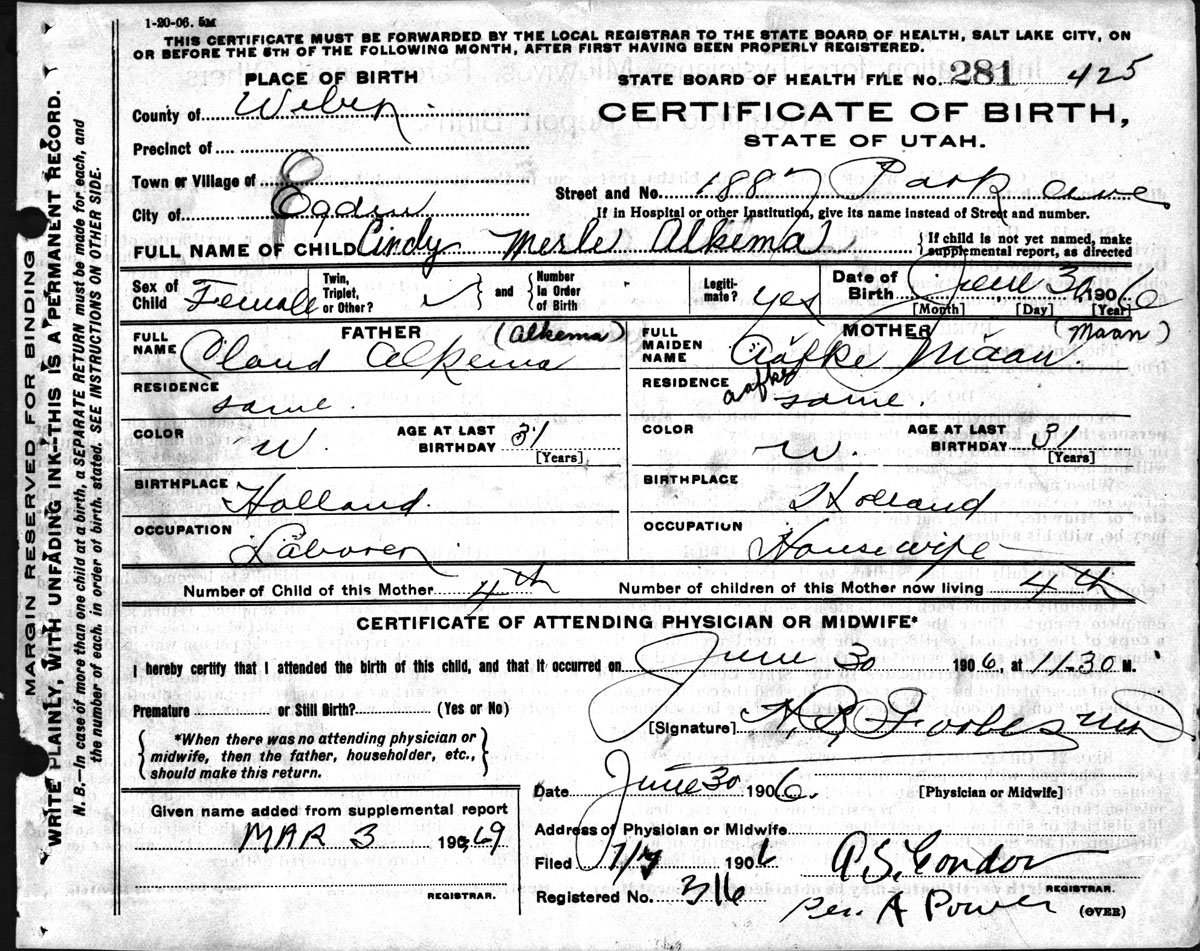 1-20-06. 5M
THIS CERTIFICATE MUST BE FORWARDED BY THE LOCAL REGISTRAR TO THE STATE BOARD OF HEALTH, SALT LAKE CITY, ON
OR BEFORE THE 5TH OF THE FOLLOWING MONTH, AFTER FIRST HAVING BEEN PROPERLY REGISTERED.
PLACE OF BIRTH
County of Weber
Precinct of
Town or Village of
City of Ogden
STATE BOARD OF HEALTH FILE NO. 281 425
CERTIFICATE OF BIRTH,
STATE OF UTAH.
Street and No. 1887 Park Ave
If in Hospital or other Institution, give its name instead of Street and number.
FULL NAME OF CHILD Cindy Merle Alkema
If child is not yet named, make
supplemental report, as directed
Sex of Child Female
Twin, Triplet, or Other?
and
Number In Order of Birth
Legiti-mate? yes
Date of Birth June 30 1906
[Month] [Day] [Year]
FATHER
FULL NAME Claud Alkema (Alkema)
RESIDENCE
same.
COLOR W.
AGE AT LAST BIRTHDAY 31
[Years]
BIRTHPLACE Holland.
OCCUPATION Laborer
MOTHER
FULL MAIDEN NAME Aafke Maan (Maan)
RESIDENCE aafke
same.
COLOR W.
AGE AT LAST BIRTHDAY 31
[Years]
BIRTHPLACE Holland
OCCUPATION Housewife
Number of Child of this Mother 4th
Number of children of this Mother now living 4th
CERTIFICATE OF ATTENDING PHYSICIAN OR MIDWIFE*
I hereby certify that I attended the birth of this child, and that it occurred on June 30 1906, at 11-30 M.
Premature or Still Birth? (Yes or No)
[Signature] Forbes MD
*When there was no attending physician or
midwife, then the father, householder, etc.,
should make this return.
Date June 30 1906. [Physician or Midwife]
Given name added from supplemental report
MAR 3 1969
REGISTRAR.
Address of Physician or Midwife
Filed 7/7 1906
Registered No. 316
REGISTRAR.
Per. A Power
(OVER)
MARGIN RESERVED FOR BINDING
WRITE PLAINLY WITH UNFADING INK--THIS IS A PERMANENT RECORD.
N. B.--In case of more than one child at a birth, a SEPARATE RETURN must be made for each, and
the number of each, in order of birth, stated. SEE INSTRUCTIONS ON OTHER SIDE.